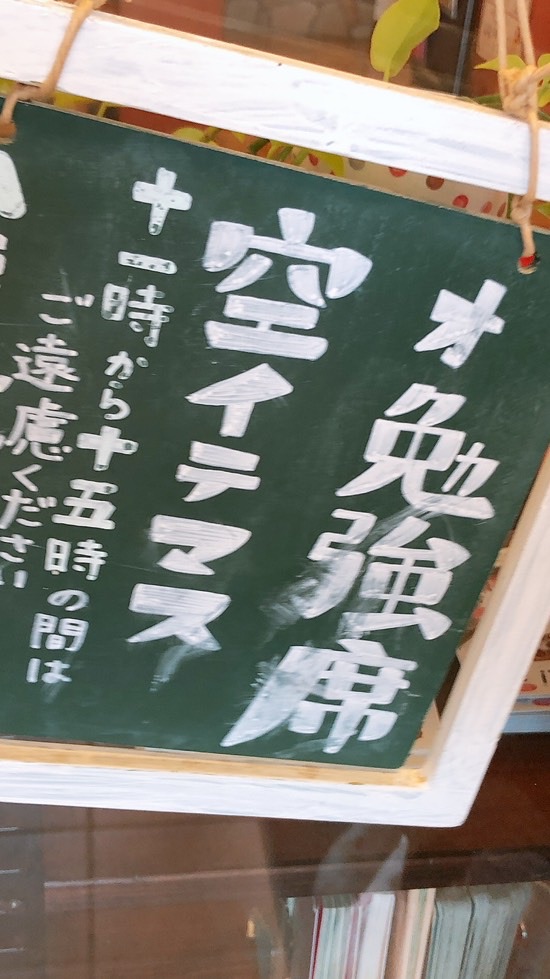 オ勉強席
空イテマス
十一時から十五時の間は
ご遠慮ください